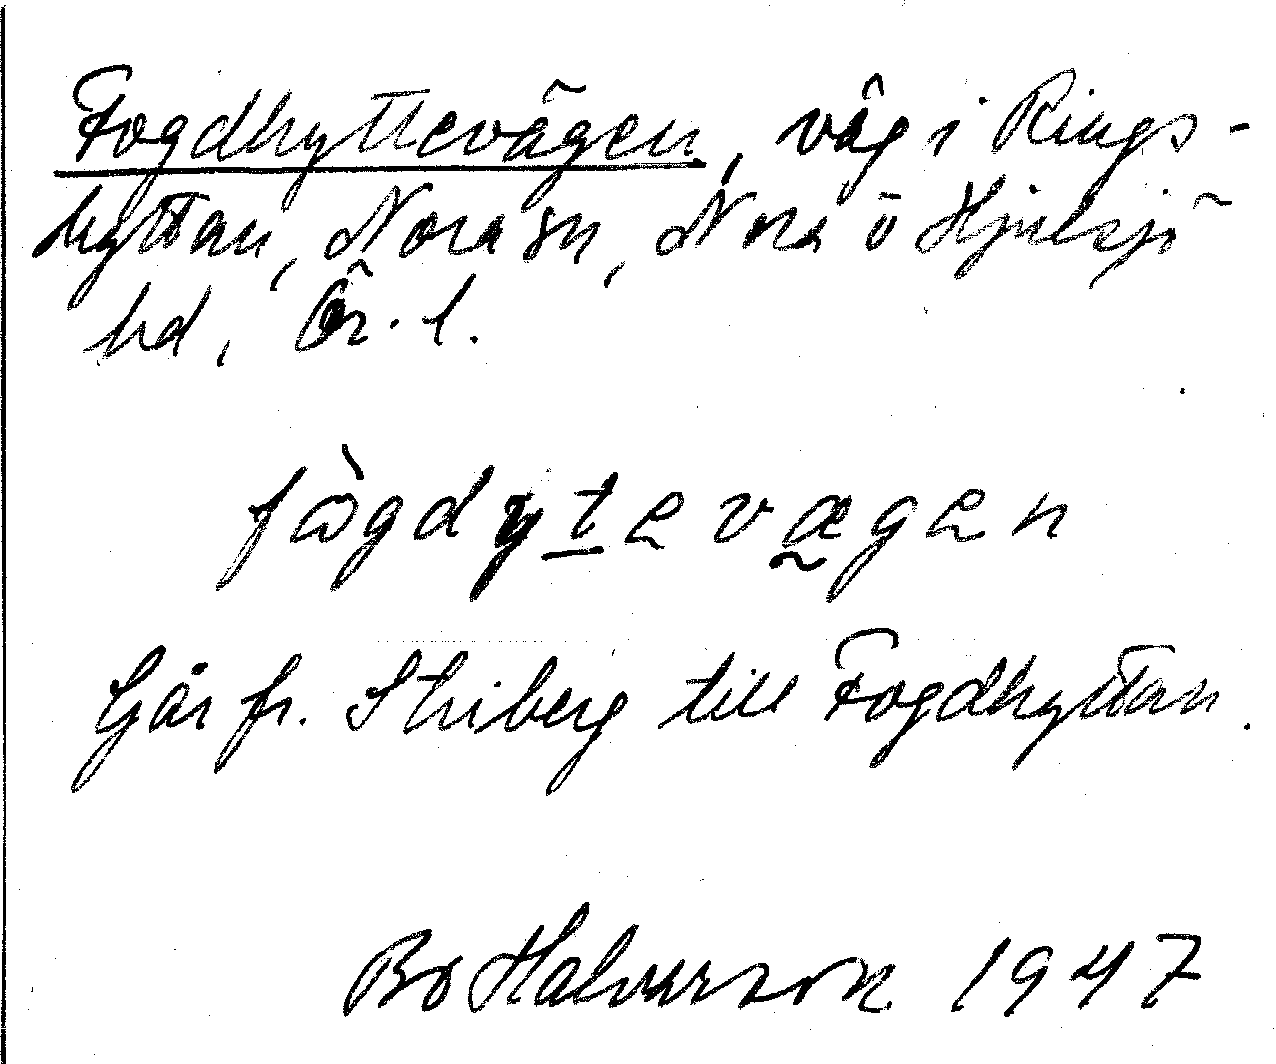 Fogdhyttevägen, väg i Rings-
hyttan, Nora sn, Nora o Hjulsjö
hd, Ör. l.
fògdytevægen
Går fr. Striberg till Fogdhyttan.
Bo Halvarson 1947